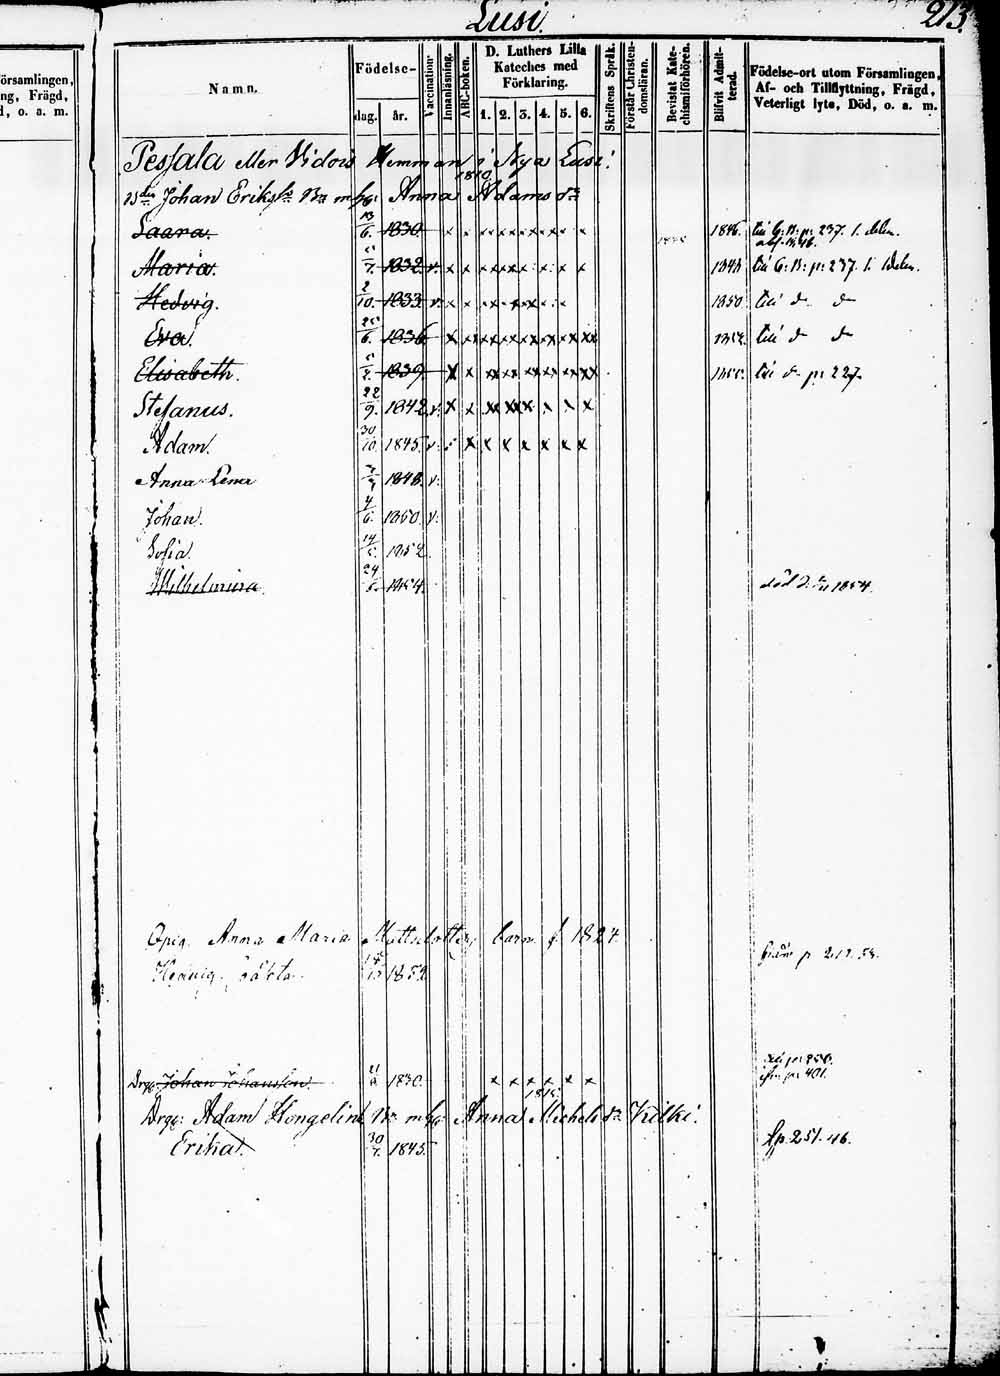 Lusi.
213.
Församlingen,
ng, Frägd,
d, o. a. m.
Namn.
Födelse-
dag. år.
Vaccination.
Innanläsning.
ABC-boken.
D. Luthers Lilla
Kateches med
Förklaring.
1. 2. 3. 4. 5. 6.
Skriftens Språk.
Förstår Christen-
domsläran.
Bevistat Kate-
chismiförhören.
Blifvit Admit-
terad.
Födelse-ort utom Församlingen,
Af- och Tillflyttning, Frägd,
Veterligt lyte, Död, o. a. m.
Pessala eller Vidois Hemman i Nya Lusi.
1810
Johan Erikss. Anna Adams dr
Saara. 13/6. 1830 x x x x x x x x x 1846. till C: B: p: 237. 1. delen.
Maria. 5/7. 1832. v. x x x x x x x x 1848 till C: B: p: 237. 1. Delen.
Hedvig. 2/10. 1833 v. x x x x x x x 1850 till d d
Eva. 25/6. 1836 x x x x x x x x till d d
Elisabeth. 5/2. 1839. x x x x x x x x till d p: 227
Stefanus. 22/9. 1842 v. x x x x x x x x
Adam. 30/10 1845 v. x x x x x x x
Anna Lena 1848. v.
Johan. 4/6. 1850. v.
Sofia. 14/5. 1852
Wilhelmina 24/5. 1854. död 1854.
Anna Maria Mattsdotter, barn f. 1824.
från p. 58.
Hedvig 1852
p: 250.
p: 401.
Dreg. Johan Johansson. 1830. x x x x x x
1815.
Dreg: Adam Kongelin m. h. Anna Michels dr Kilki.
Erika. 30/7. 1845. fr. p. 251. 46.